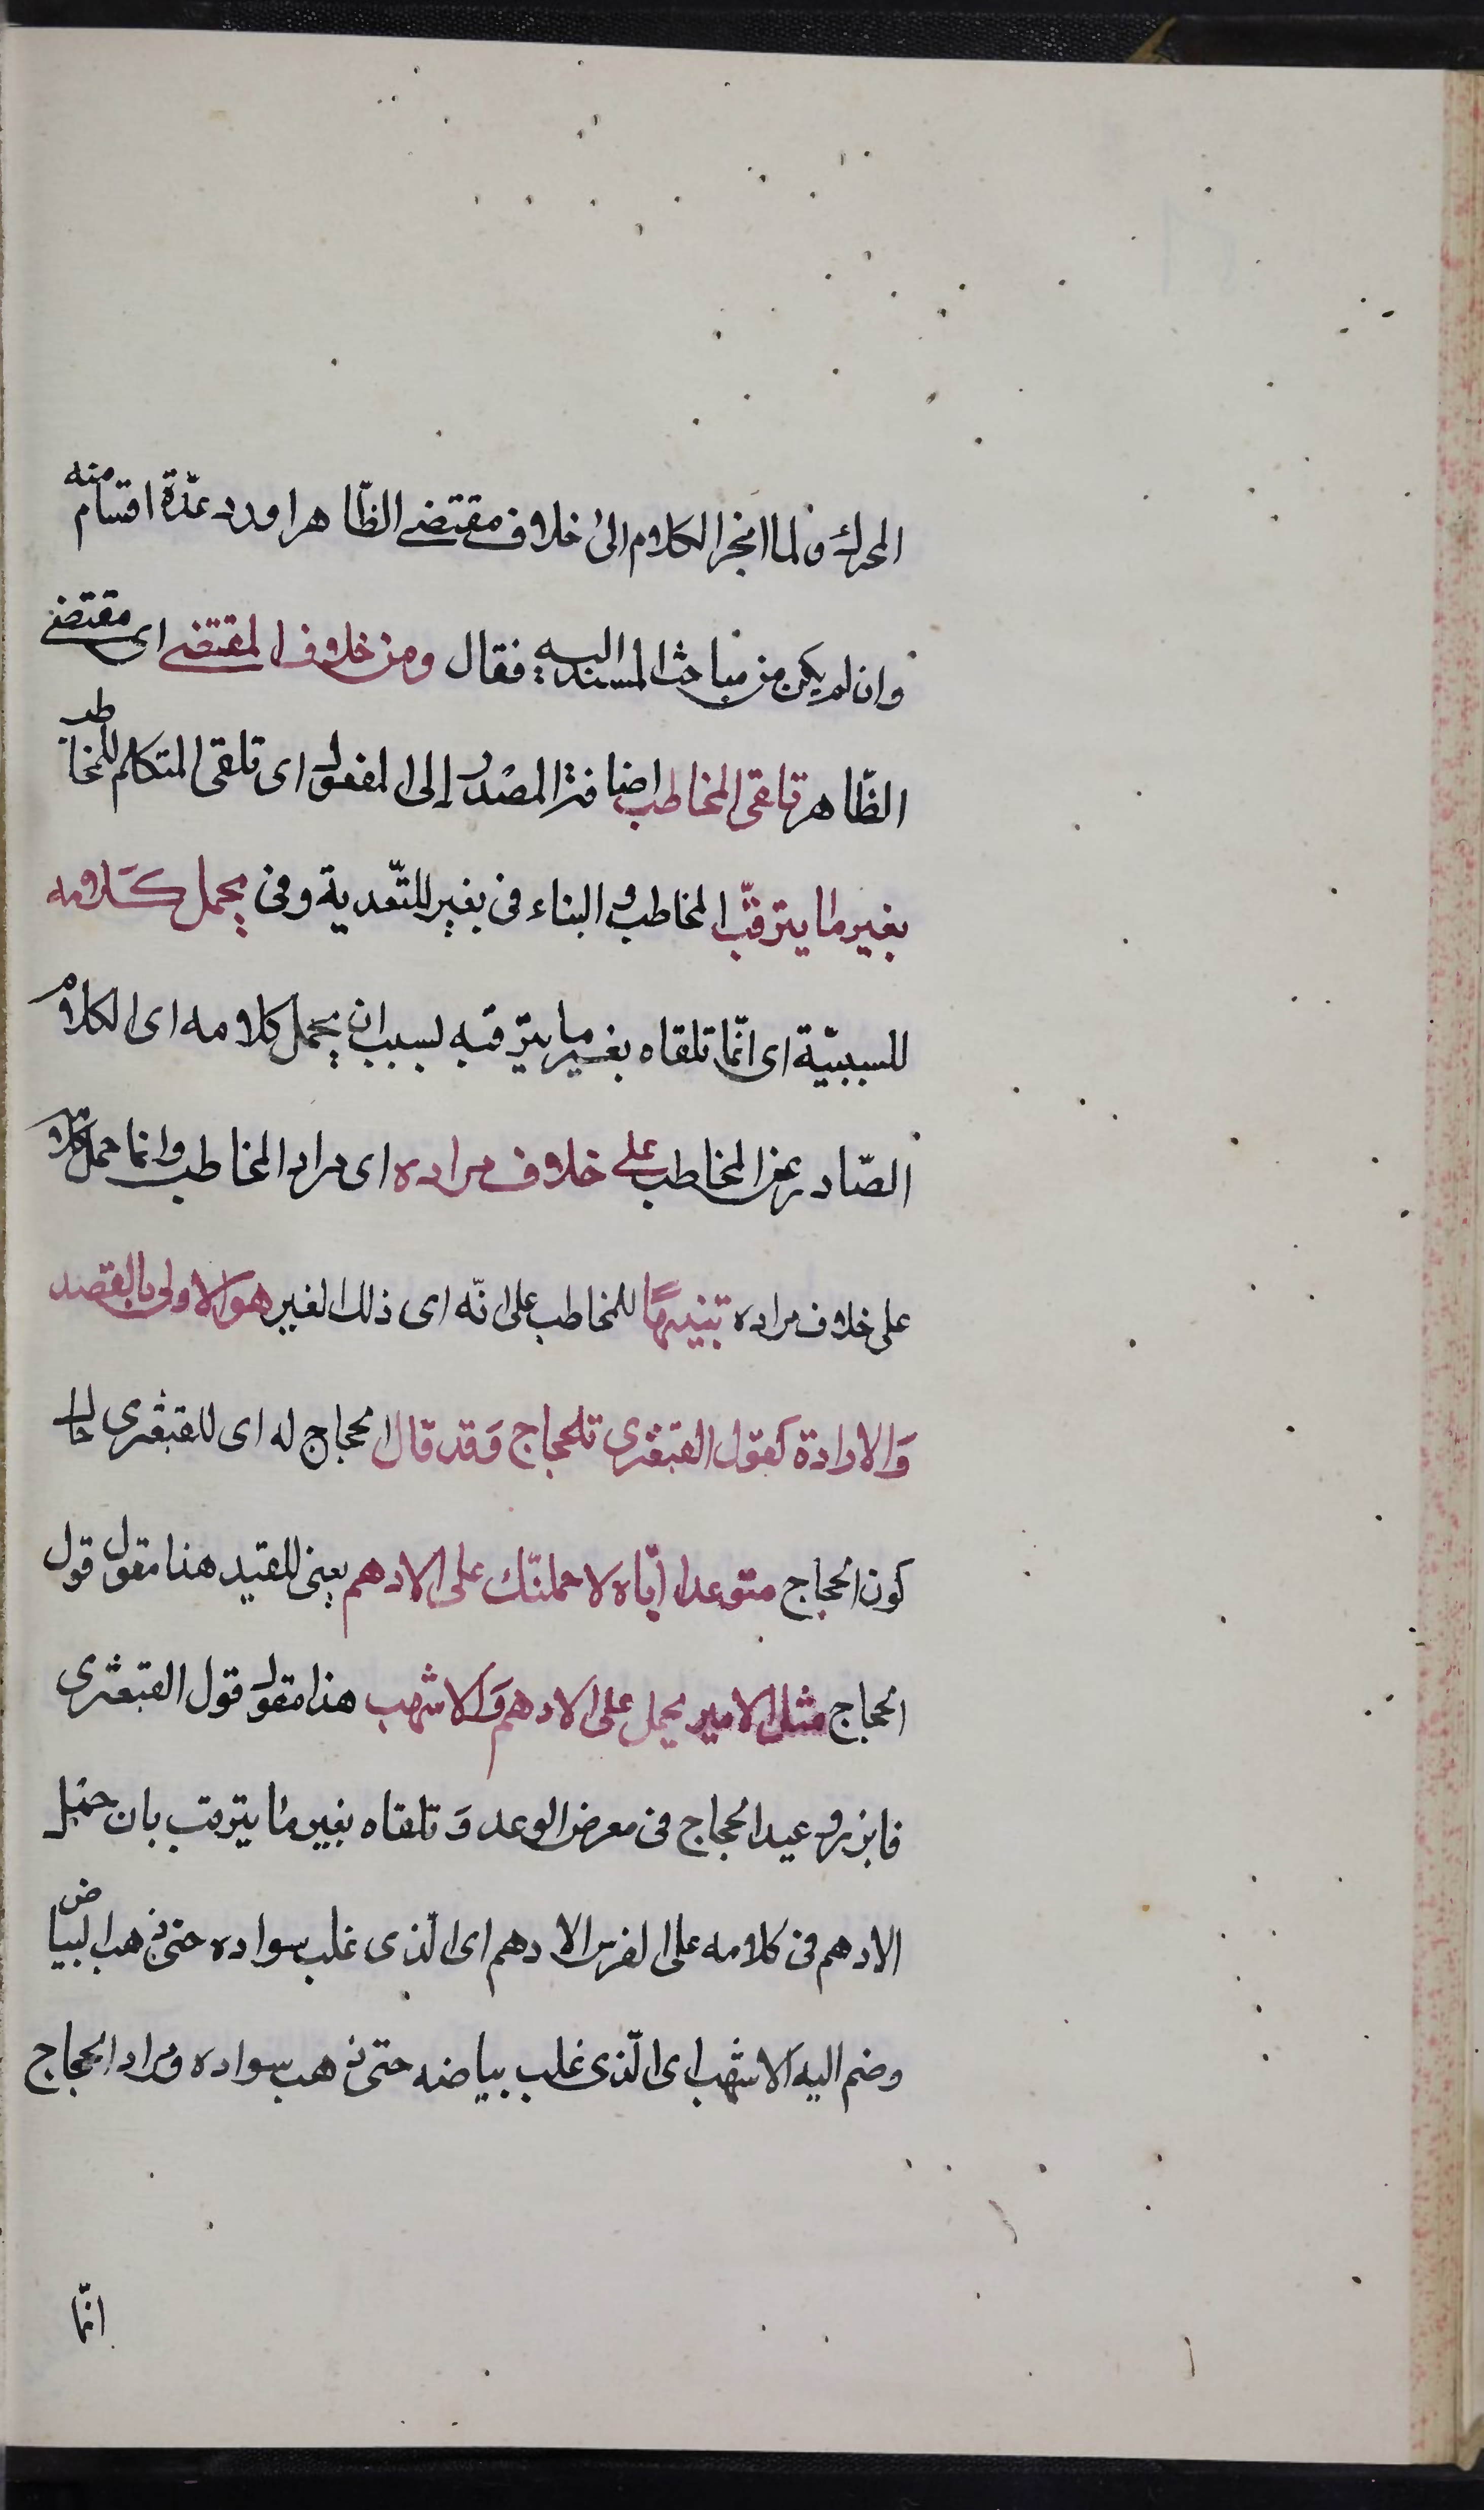 المحرك ولما انجر الكلام الى خلاف مقتضى الظّاهر اورد عدّة اقسام منه
وان لم يكن من مباحث المسند اليه فقال ومن خلاف المقتضى اى مقتضى
الظّاهر تلقى المخاطب اضافة المصدر إلى المفعول اى تلقى المتكلم للمخاطب
بغير ما يترقّب المخاطب و الباء فى بغير للتّعدية وفى بحمل كَلامه
للسببيّة اى انّما تلقاه بغير ما يترقبه بسبب ان يحمل كلامه اى الكلام
الصّادر عن المخاطب على خلاف مراده اى مراد المخاطب وانما حمل كلامه
على خلاف مراده تنبيهًا للمخاطب على انّه اى ذلك الغير هو الاولى بالقصد
وَالارادة كقول القبعثرى للحجاج وَقد قال الحجاج له اى للقبعثرى حال
كون الحجاج متوعدا ايّاه لاحملنّك على الادهم يعنى القيد هذا مقول قول
الحجاج مثل الامير يحمل على الادهم وَالاشهب هذا مقول قول القبعثرى
فابرز وعيد الحجاج فى معرض الوعد وَتلقاه بغير ما يترقب بان حمل
الادهم فى كلامه على الفرس الادهم اى الّذى غلب سواده حتى ذهب البياض
وضم اليه الاشهب اى الّذى غلب بياضه حتى ذهب سواده ومراد الحجاج
انّما